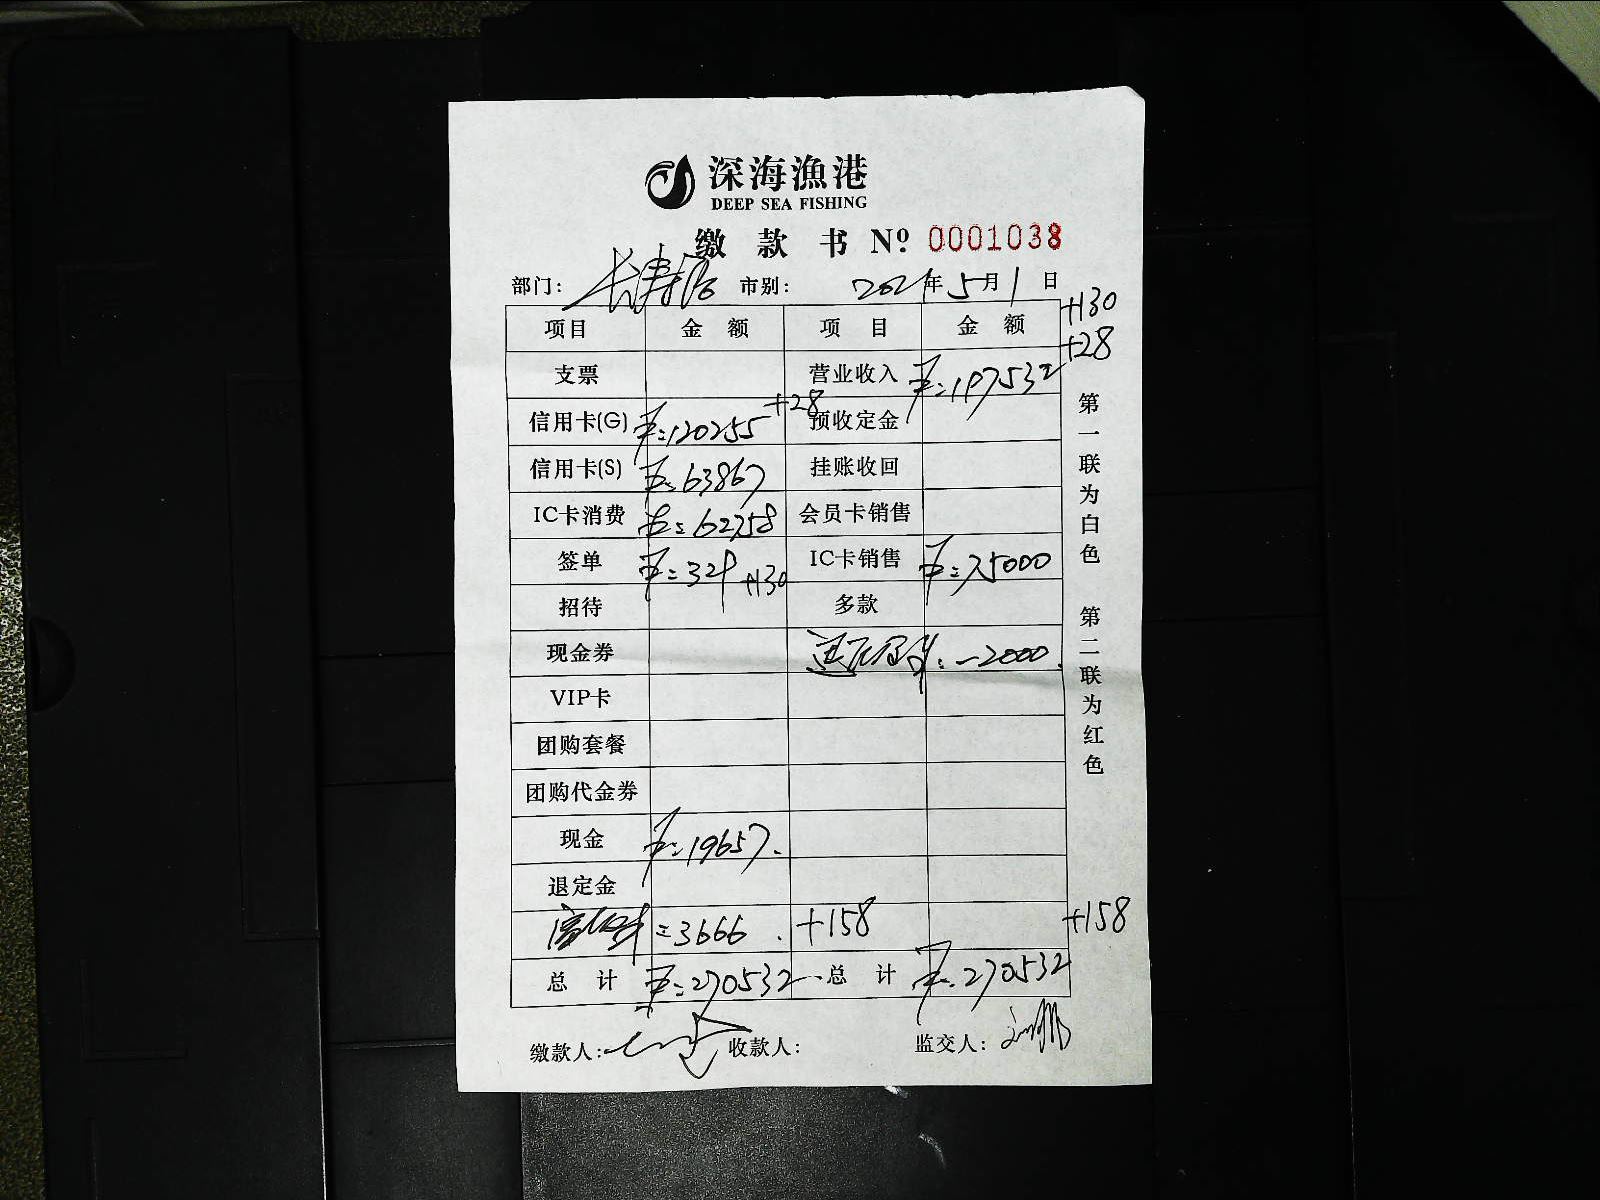 深海漁港
DEEP SEA FISHING
缴款书 Nº 0001038
部门: 长寿路 市别: 2021年5月1日
+130
项目 金额 项目 金额
+28
支票 营业收入 ¥:197532
信用卡(G) ¥:120255 +28 预收定金
信用卡(S) ¥:63867 挂账收回
IC卡消费 ¥:62758 会员卡销售
签单 ¥:329 +130 IC卡销售 ¥:75000
招待 多款
现金券 :-2000.
VIP卡
团购套餐
团购代金券
现金 ¥:19657.
退定金
:3666. +158 +158
总计 ¥:270532 总计 ¥:270532
缴款人: 收款人: 监交人:
第一联为白色 第二联为红色